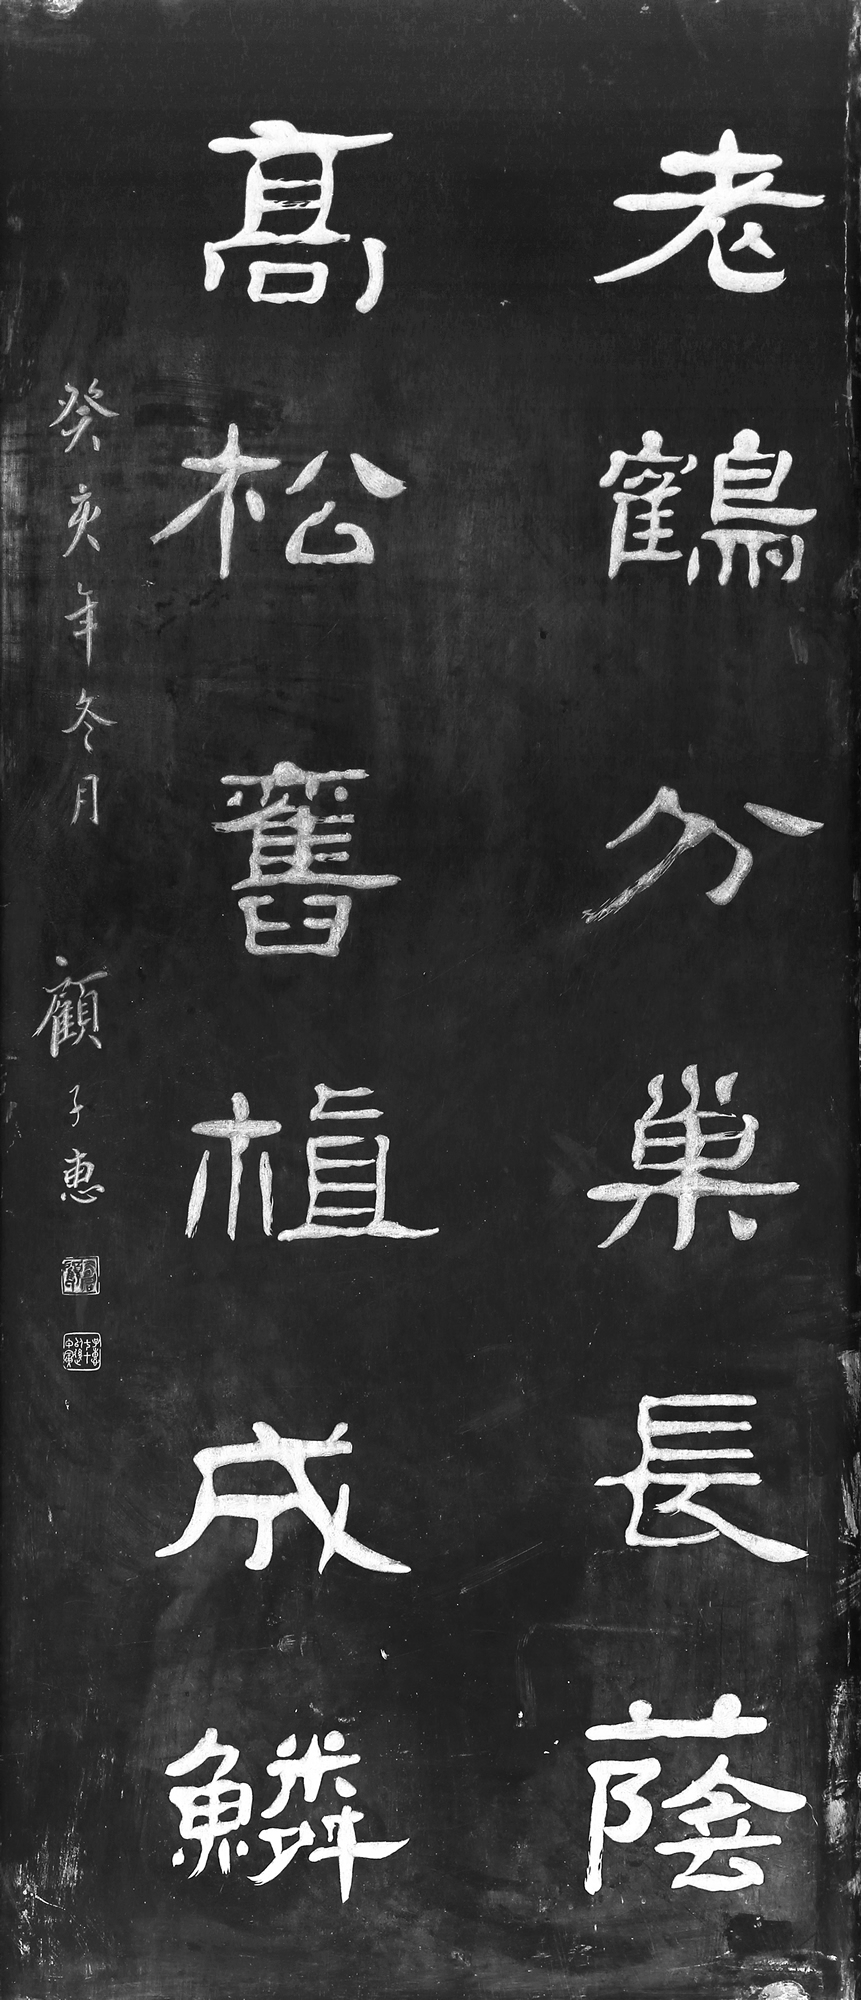 老鶴分巢長蔭
髙松舊植成鱗
癸亥年冬月 顧子惠